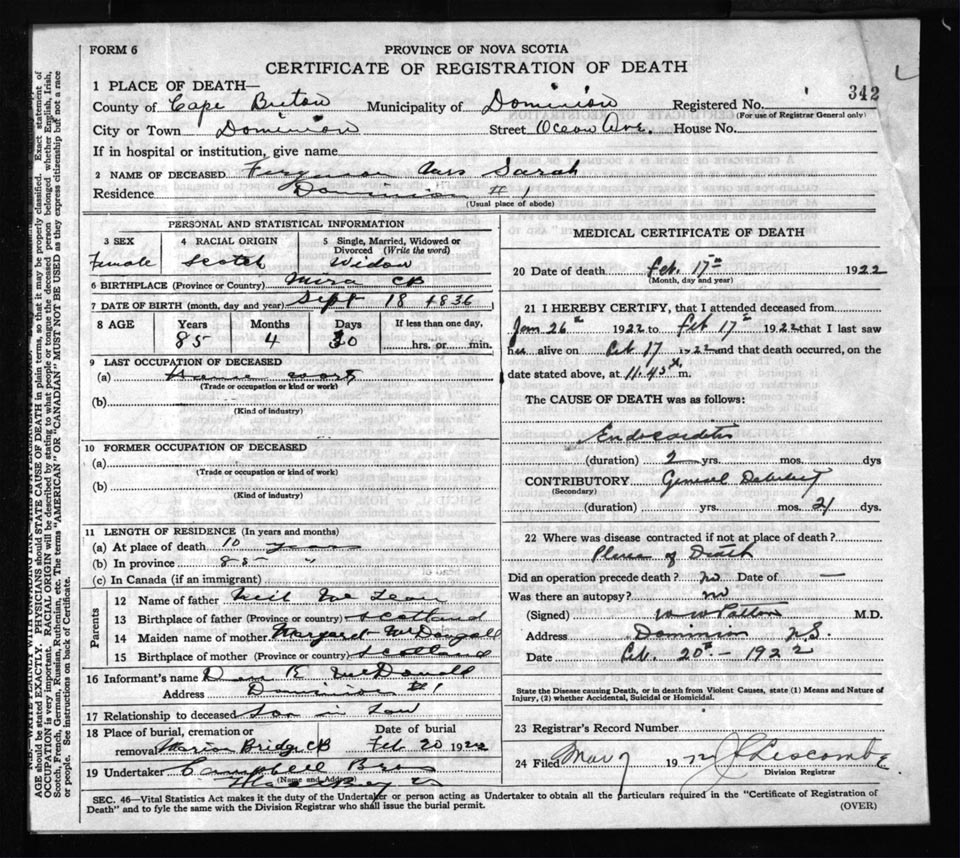 FORM 6
PROVINCE OF NOVA SCOTIA
CERTIFICATE OF REGISTRATION OF DEATH
342
1 PLACE OF DEATH—
County of Cape Breton Municipality of Dominion Registered No.
(For use of Registrar General only)
City or Town Dominion Street Ocean Ave. House No.
If in hospital or institution, give name
2 NAME OF DECEASED Ferguson Sarah
Residence Dominion # 1
(Usual place of abode)
PERSONAL AND STATISTICAL INFORMATION
3 SEX 4 RACIAL ORIGIN 5 Single, Married, Widowed or Divorced (Write the word)
Female Scotch Widow
6 BIRTHPLACE (Province or Country) Mira CB
7 DATE OF BIRTH (month, day and year) Sept 18 1836
8 AGE Years Months Days If less than one day,
85 4 30 hrs. or min.
9 LAST OCCUPATION OF DECEASED
(a)
(Trade or occupation or kind of work)
(b)
(Kind of industry)
10 FORMER OCCUPATION OF DECEASED
(a)
(Trade or occupation or kind of work)
(b)
(Kind of industry)
11 LENGTH OF RESIDENCE (In years and months)
(a) At place of death 10 years
(b) In province 85 "
(c) In Canada (if an immigrant)
Parents
12 Name of father Neil McLean
13 Birthplace of father (Province or country) Scotland
14 Maiden name of mother Margaret McDougall
15 Birthplace of mother (Province or country) Scotland
16 Informant's name
Address Dominion #1
17 Relationship to deceased Son in Law
18 Place of burial, cremation or Date of burial
removal Marion Bridge CB Feb 20 1922
19 Undertaker Campbell Bros
(Name and Address)
MEDICAL CERTIFICATE OF DEATH
20 Date of death Feb. 17th 1922
(Month, day and year)
21 I HEREBY CERTIFY, that I attended deceased from
Jan 26th 1922 to Feb 17th 1922 that I last saw
her alive on Feb 17 1922 and that death occurred, on the
date stated above, at 11.45 m.
The CAUSE OF DEATH was as follows:
Endocarditis
(duration) 2 yrs. mos. dys
CONTRIBUTORY General Debility
(Secondary)
(duration) yrs. mos. 21 dys.
22 Where was disease contracted if not at place of death?
Place of Death
Did an operation precede death? No Date of —
Was there an autopsy? no
(Signed) W W Patton M.D.
Address Dominion N.S.
Date Feb. 20th - 1922
State the Disease causing Death, or in death from Violent Causes, state (1) Means and Nature of
Injury, (2) whether Accidental, Suicidal or Homicidal.
23 Registrar's Record Number
24 Filed Mar 7 19
Division Registrar
SEC. 46—Vital Statistics Act makes it the duty of the Undertaker or person acting as Undertaker to obtain all the particulars required in the "Certificate of Registration of
Death" and to fyle the same with the Division Registrar who shall issue the burial permit.
(OVER)
AGE should be stated EXACTLY. PHYSICIANS should STATE CAUSE OF DEATH in plain terms, so that it may be properly classified. Exact statement of
OCCUPATION is very important. RACIAL ORIGIN will be described by stating to what people or tongue the deceased person belonged whether English, Irish,
Scotch, French, German, Russian, Ruthenian, etc. The terms "AMERICAN" OR "CANADIAN" MUST NOT BE USED as they express citizenship but not a race
or people. See instructions on back of Certificate.